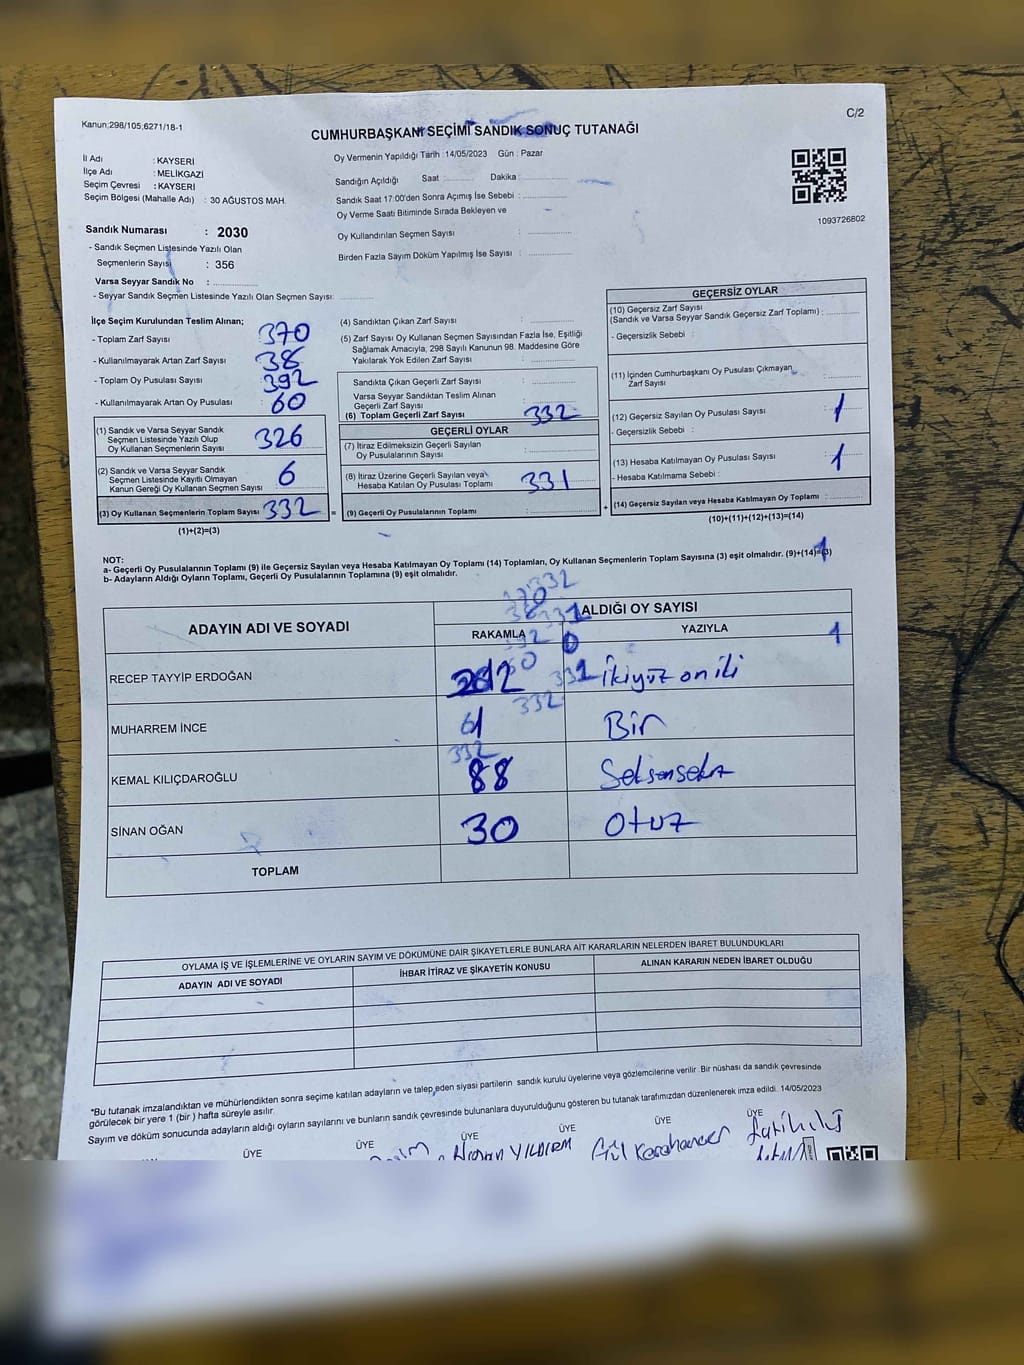 Kanun;298/105;6271/18-1
C/2
CUMHURBAŞKANI SEÇİMİ SANDIK SONUÇ TUTANAĞI
İl Adı : KAYSERİ
İlçe Adı : MELİKGAZİ
Seçim Çevresi : KAYSERİ
Seçim Bölgesi (Mahalle Adı) : 30 AĞUSTOS MAH.
Oy Vermenin Yapıldığı Tarih :14/05/2023 Gün : Pazar
Sandığın Açıldığı Saat : Dakika :
Sandık Saat 17:00'den Sonra Açımış İse Sebebi :
Oy Verme Saati Bitiminde Sırada Bekleyen ve
Oy Kullandırılan Seçmen Sayısı :
Birden Fazla Sayım Döküm Yapılmış İse Sayısı :
1093726802
Sandık Numarası : 2030
- Sandık Seçmen Listesinde Yazılı Olan
Seçmenlerin Sayısı : 356
Varsa Seyyar Sandık No :
- Seyyar Sandık Seçmen Listesinde Yazılı Olan Seçmen Sayısı:
İlçe Seçim Kurulundan Teslim Alınan;
- Toplam Zarf Sayısı : 370
- Kullanılmayarak Artan Zarf Sayısı : 38
- Toplam Oy Pusulası Sayısı : 392
- Kullanılmayarak Artan Oy Pusulası : 60
(1) Sandık ve Varsa Seyyar Sandık
Seçmen Listesinde Yazılı Olup
Oy Kullanan Seçmenlerin Sayısı : 326
(2) Sandık ve Varsa Seyyar Sandık
Seçmen Listesinde Kayıtlı Olmayan
Kanun Gereği Oy Kullanan Seçmen Sayısı : 6
(3) Oy Kullanan Seçmenlerin Toplam Sayısı : 332 =
(1)+(2)=(3)
(4) Sandıktan Çıkan Zarf Sayısı :
(5) Zarf Sayısı Oy Kullanan Seçmen Sayısından Fazla İse, Eşitliği
Sağlamak Amacıyla, 298 Sayılı Kanunun 98. Maddesine Göre
Yakılarak Yok Edilen Zarf Sayısı :
Sandıkta Çıkan Geçerli Zarf Sayısı :
Varsa Seyyar Sandıktan Teslim Alınan
Geçerli Zarf Sayısı :
(6) Toplam Geçerli Zarf Sayısı : 332
GEÇERLİ OYLAR
(7) İtiraz Edilmeksizin Geçerli Sayılan
Oy Pusulasının Sayısı :
(8) İtiraz Üzerine Geçerli Sayılan veya
Hesaba Katılan Oy Pusulası Toplamı : 331
(9) Geçerli Oy Pusulalarının Toplamı : +
GEÇERSİZ OYLAR
(10) Geçersiz Zarf Sayısı
(Sandık ve Varsa Seyyar Sandık Geçersiz Zarf Toplamı) :
- Geçersizlik Sebebi :
(11) İçinden Cumhurbaşkanı Oy Pusulası Çıkmayan
Zarf Sayısı :
(12) Geçersiz Sayılan Oy Pusulası Sayısı : 1
- Geçersizlik Sebebi :
(13) Hesaba Katılmayan Oy Pusulası Sayısı : 1
- Hesaba Katılmama Sebebi :
(14) Geçersiz Sayılan veya Hesaba Katılmayan Oy Toplamı :
(10)+(11)+(12)+(13)=(14)
NOT:
a- Geçerli Oy Pusulalarının Toplamı (9) ile Geçersiz Sayılan veya Hesaba Katılmayan Oy Toplamı (14) Toplamları, Oy Kullanan Seçmenlerin Toplam Sayısına (3) eşit olmalıdır. (9)+(14)=(3)
b- Adayların Aldığı Oyların Toplamı, Geçerli Oy Pusulalarının Toplamına (9) eşit olmalıdır.
ADAYIN ADI VE SOYADI
ALDIĞI OY SAYISI
RAKAMLA YAZIYLA
RECEP TAYYİP ERDOĞAN 212 İkiyüz on iki
MUHARREM İNCE Bir
KEMAL KILIÇDAROĞLU 88 Seksensekz
SİNAN OĞAN 30 Otuz
TOPLAM
OYLAMA İŞ VE İŞLEMLERİNE VE OYLARIN SAYIM VE DÖKÜMÜNE DAİR ŞİKAYETLERLE BUNLARA AİT KARARLARIN NELERDEN İBARET BULUNDUKLARI
ADAYIN ADI VE SOYADI İHBAR İTİRAZ VE ŞİKAYETİN KONUSU ALINAN KARARIN NEDEN İBARET OLDUĞU
*Bu tutanak imzalandıktan ve mühürlendikten sonra seçime katılan adayların ve talep eden siyasi partilerin sandık kurulu üyelerine veya gözlemcilerine verilir .Bir nüshası da sandık çevresinde
görülecek bir yere 1 (bir ) hafta süreyle asılır.
Sayım ve döküm sonucunda adayların aldığı oyların sayılarını ve bunların sandık çevresinde bulunanlara duyurulduğunu gösteren bu tutanak tarafımızdan düzenlenerek imza edildi. 14/05/2023
ÜYE ÜYE ÜYE ÜYE ÜYE
YILDIRIM Gül Karahancer